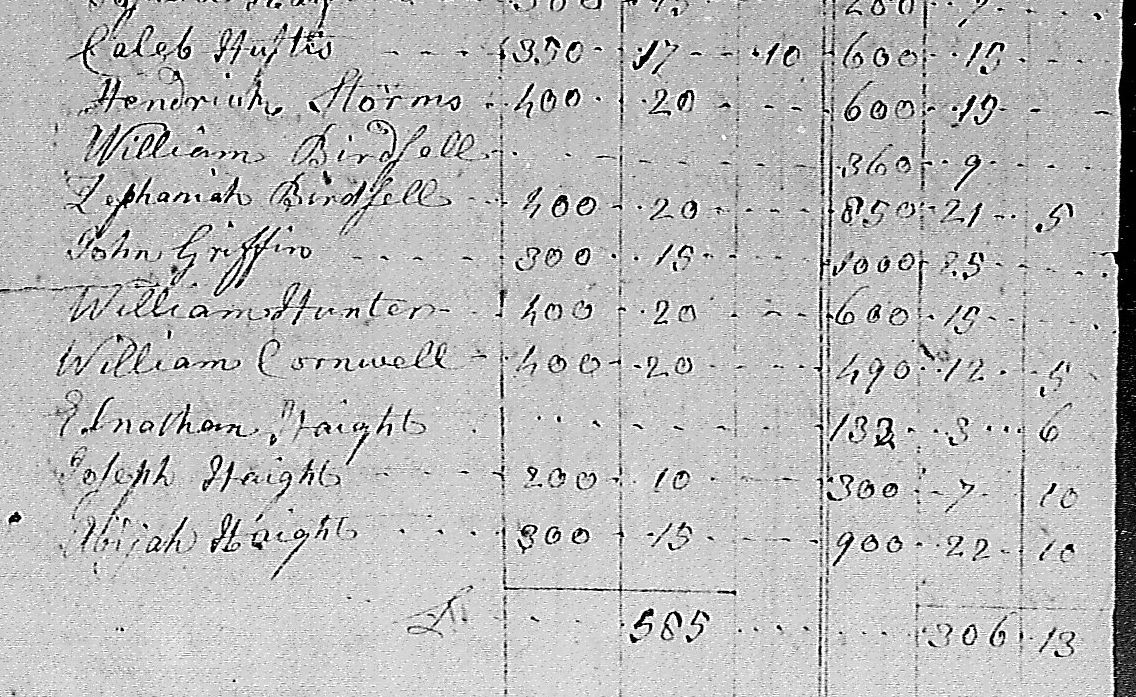 300 15 200 7
Caleb Hustis 350 17 10 600 15
Hendrick Storms 400 20 600 15
William Birdsell 360 9
Zephaniah Birdsell 400 20 850 21 5
John Griffin 300 15 1000 25
William Hunter 400 20 600 15
William Cornwell 400 20 490 12 5
Elnathan Haight 132 3 6
Joseph Haight 200 10 300 7 10
Abijah Haight 300 15 900 22 10
£ 585 306 13